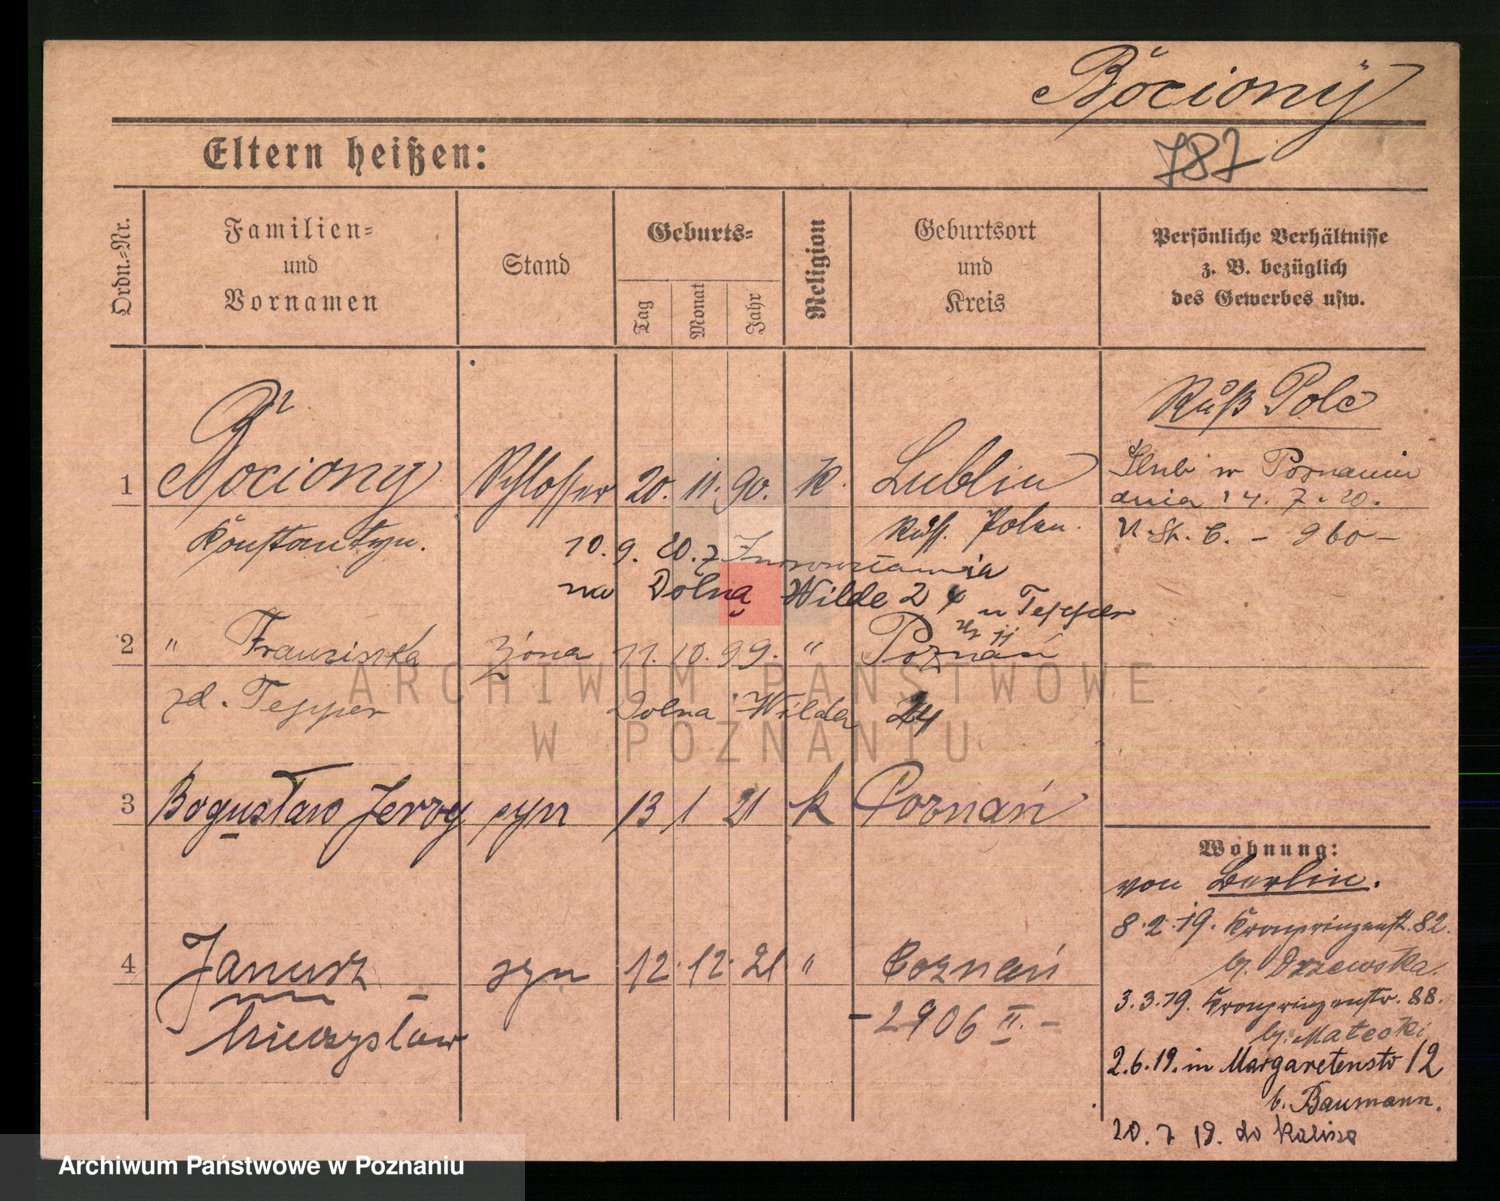 Bociony
787
Eltern heißen:
Ordn.-Nr.
Familien- und Vornamen
Stand
Geburts-
Tag
Monat
Jahr
Religion
Geburtsort und Kreis
Persönliche Verhältnisse z. B. bezüglich des Gewerbes usw.
Ruß Polc
1 Bociony Schlosser 20. 11. 90. K. Lublin
Ślub w Poznaniu
dnia 14. 7. 20.
Konstantyn. Russ. Polen.
U. St. C. - 960 -
10. 9. 20. z Inowrocławia
na Dolną Wilde 24 u Tepper
2 " Franziska żona 11. 10. 99. " Poznań
zd. Tepper Dolna Wilda 24
3 Bogusław Jerzy syn 13 1 21 k Poznań
Wohnung:
von Berlin.
8. 2. 19. Kronprinzenst. 82.
bj. Drzewska.
4 Janusz syn 12. 12. 21 " Poznań
3. 3. 19. Kronprinzenstr. 88.
- Mieczysław - 2906 II. -
bj. Matecki
2. 6. 19. in Margaretenstr 12
b. Baumann.
20. 7 19. do Kalisza
ARCHIWUM PAŃSTWOWE
W POZNANIU
Archiwum Państwowe w Poznaniu